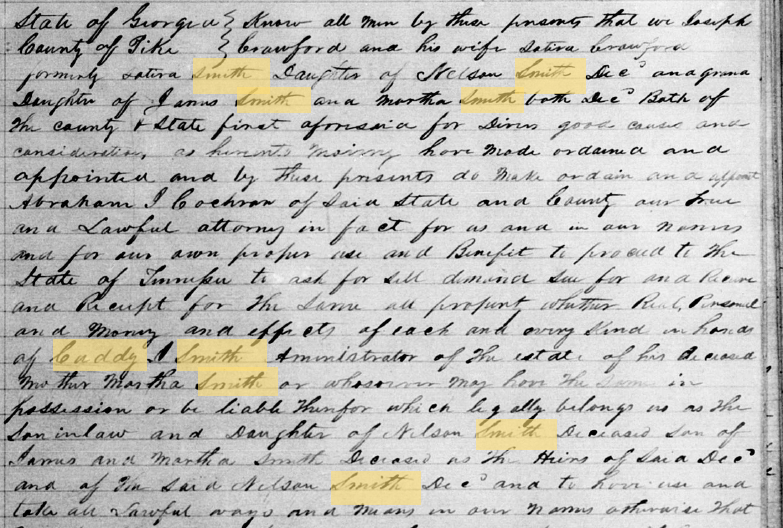 State of Georgia } Know all men by these presents that we Joseph
County of Pike } Crawford and his wife Sotira Crawford
formerly Sotira Smith Daughter of Nelson Smith Decd and grand
Daughter of James Smith and Martha Smith both Decd Both of
the county & State first aforesaid for Divers good causes and
considerations us hereunto moving have Made ordained and
appointed and by these presents do Make ordain and appoint
Abraham J Cochran of Said State and County our True
and Lawful attorney in fact for us and in our names
and for our own proper use and Benefit to proceed to the
State of Tennessee to ask for sell demand sue for and Receive
and Receipt for the same all property whether Real, Personal
and Money and effects of each and every Kind in hands
of Caddy Smith Aministrator of the estate of his deceased
mother Martha Smith or whosoever may have the same in
possession or be liable therefor which legally belongs us as the
Soninlaw and Daughter of Nelson Smith Deceased son of
James and Martha Smith Deceased as the Heirs of Said Decd
and of the said Nelson Smith Decd and to have use and
take all Lawful ways and Means in our Names otherwise that